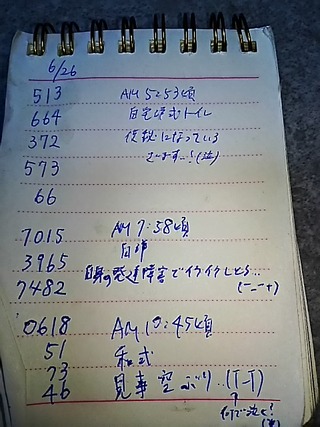 6/26
513 AM 5:53頃
664 自宅洋式トイレ
372 役秘になっている
573 さいます…!(泣)
66
7015 AM 7:58頃
3965 自宅
7482 自身の発達障害でイライラしとる…
(ーーナ)
0618 AM 10:45頃
51 和式
73 見事空ぶり…(T_T)
46 何で泣く!
(笑)